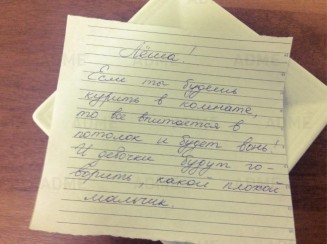 Лёша!
Если ты будешь
курить в комнате,
то всё впитается в
потолок и будет вонь!
И девочки будут го-
ворить, какой плохой
мальчик.